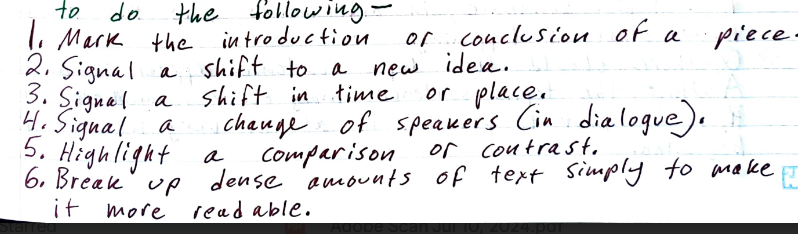 to do the following—
1. Mark the introduction or conclusion of a piece.
2. Signal a shift to a new idea.
3. Signal a shift in time or place.
4. Signal a change of speakers (in dialogue).
5. Highlight a comparison or contrast.
6. Break up dense amounts of text simply to make
it more readable.
Starred
Adobe Scan Jul 10, 2024.pdf